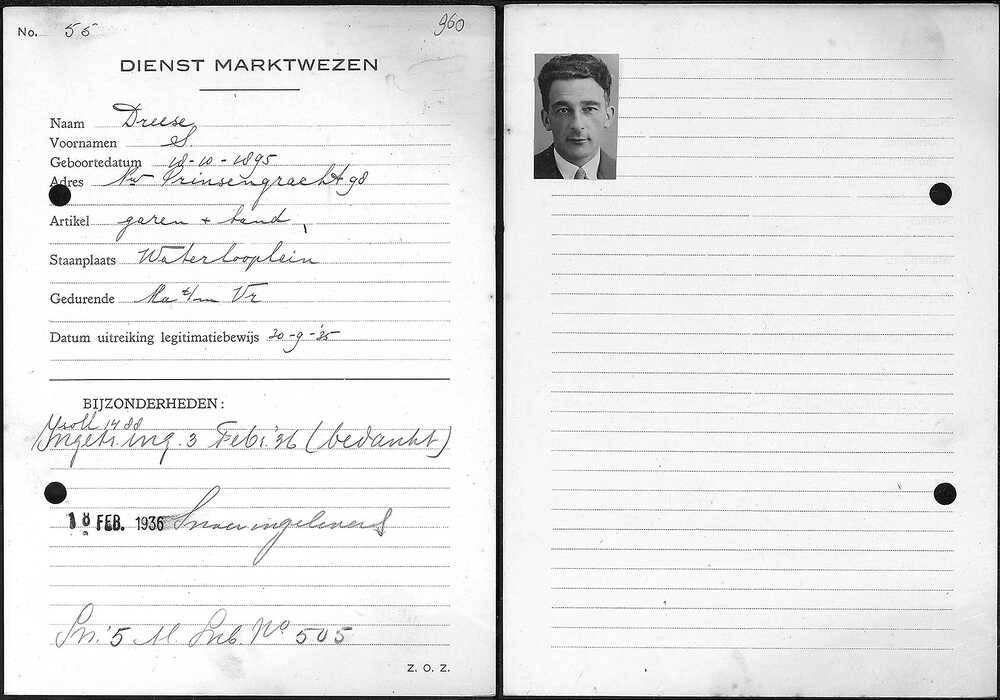 No. 55
960
DIENST MARKTWEZEN
Naam Dreese
Voornamen S.
Geboortedatum 18-10-1895
Adres Nw Prinsengracht 98
Artikel garen + band
Staanplaats Waterlooplein
Gedurende Ma t/m Vr
Datum uitreiking legitimatiebewijs 20-9-'35
BIJZONDERHEDEN:
1488
Ingetr. ing. 3 Feb. '36 (bedankt)
18 FEB. 1936 ingeleverd
5 M No 505
Z. O. Z.